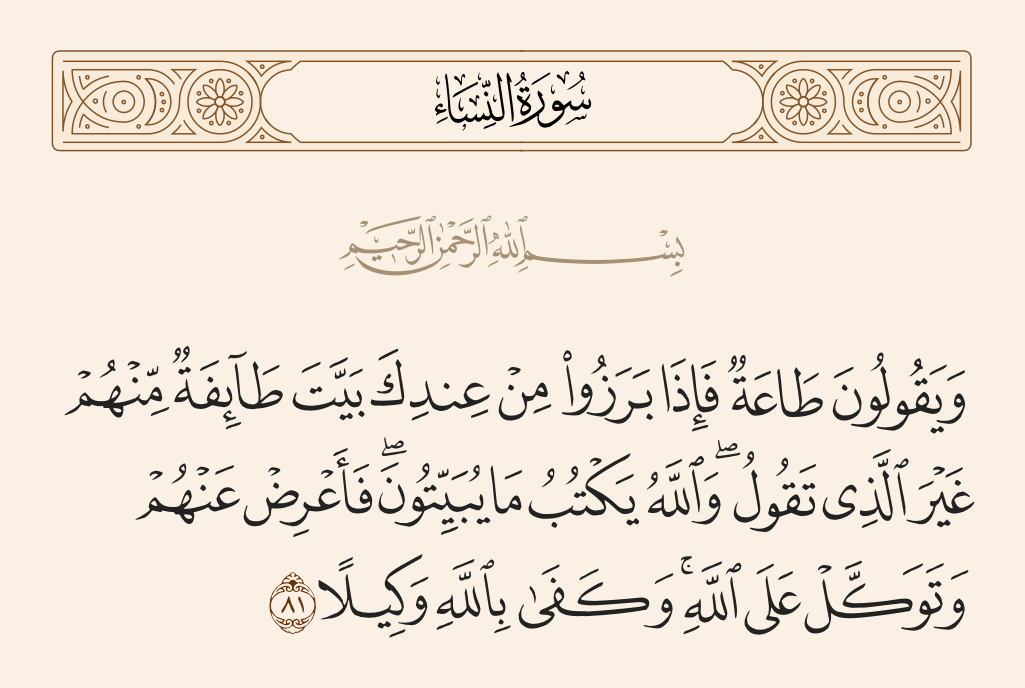 سُورَةُ النِّسَاءِ
بِسْمِ ٱللَّهِ ٱلرَّحْمَٰنِ ٱلرَّحِيمِ
وَيَقُولُونَ طَاعَةٌ فَإِذَا بَرَزُوا۟ مِنْ عِندِكَ بَيَّتَ طَآئِفَةٌ مِّنْهُمْ
غَيْرَ ٱلَّذِى تَقُولُ ۖ وَٱللَّهُ يَكْتُبُ مَا يُبَيِّتُونَ ۖ فَأَعْرِضْ عَنْهُمْ
وَتَوَكَّلْ عَلَى ٱللَّهِ ۚ وَكَفَىٰ بِٱللَّهِ وَكِيلًا ٨١